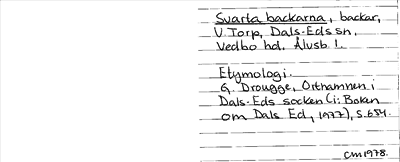 Svarta backarna, backar,
V. Torp, Dals-Eds sn,
Vedbo hd, Älvsb l.
Etymologi.
G. Drougge, Ortnamnen i
Dals-Eds socken (i: Boken
om Dals Ed, 1977), s. 654.
CM 1978.